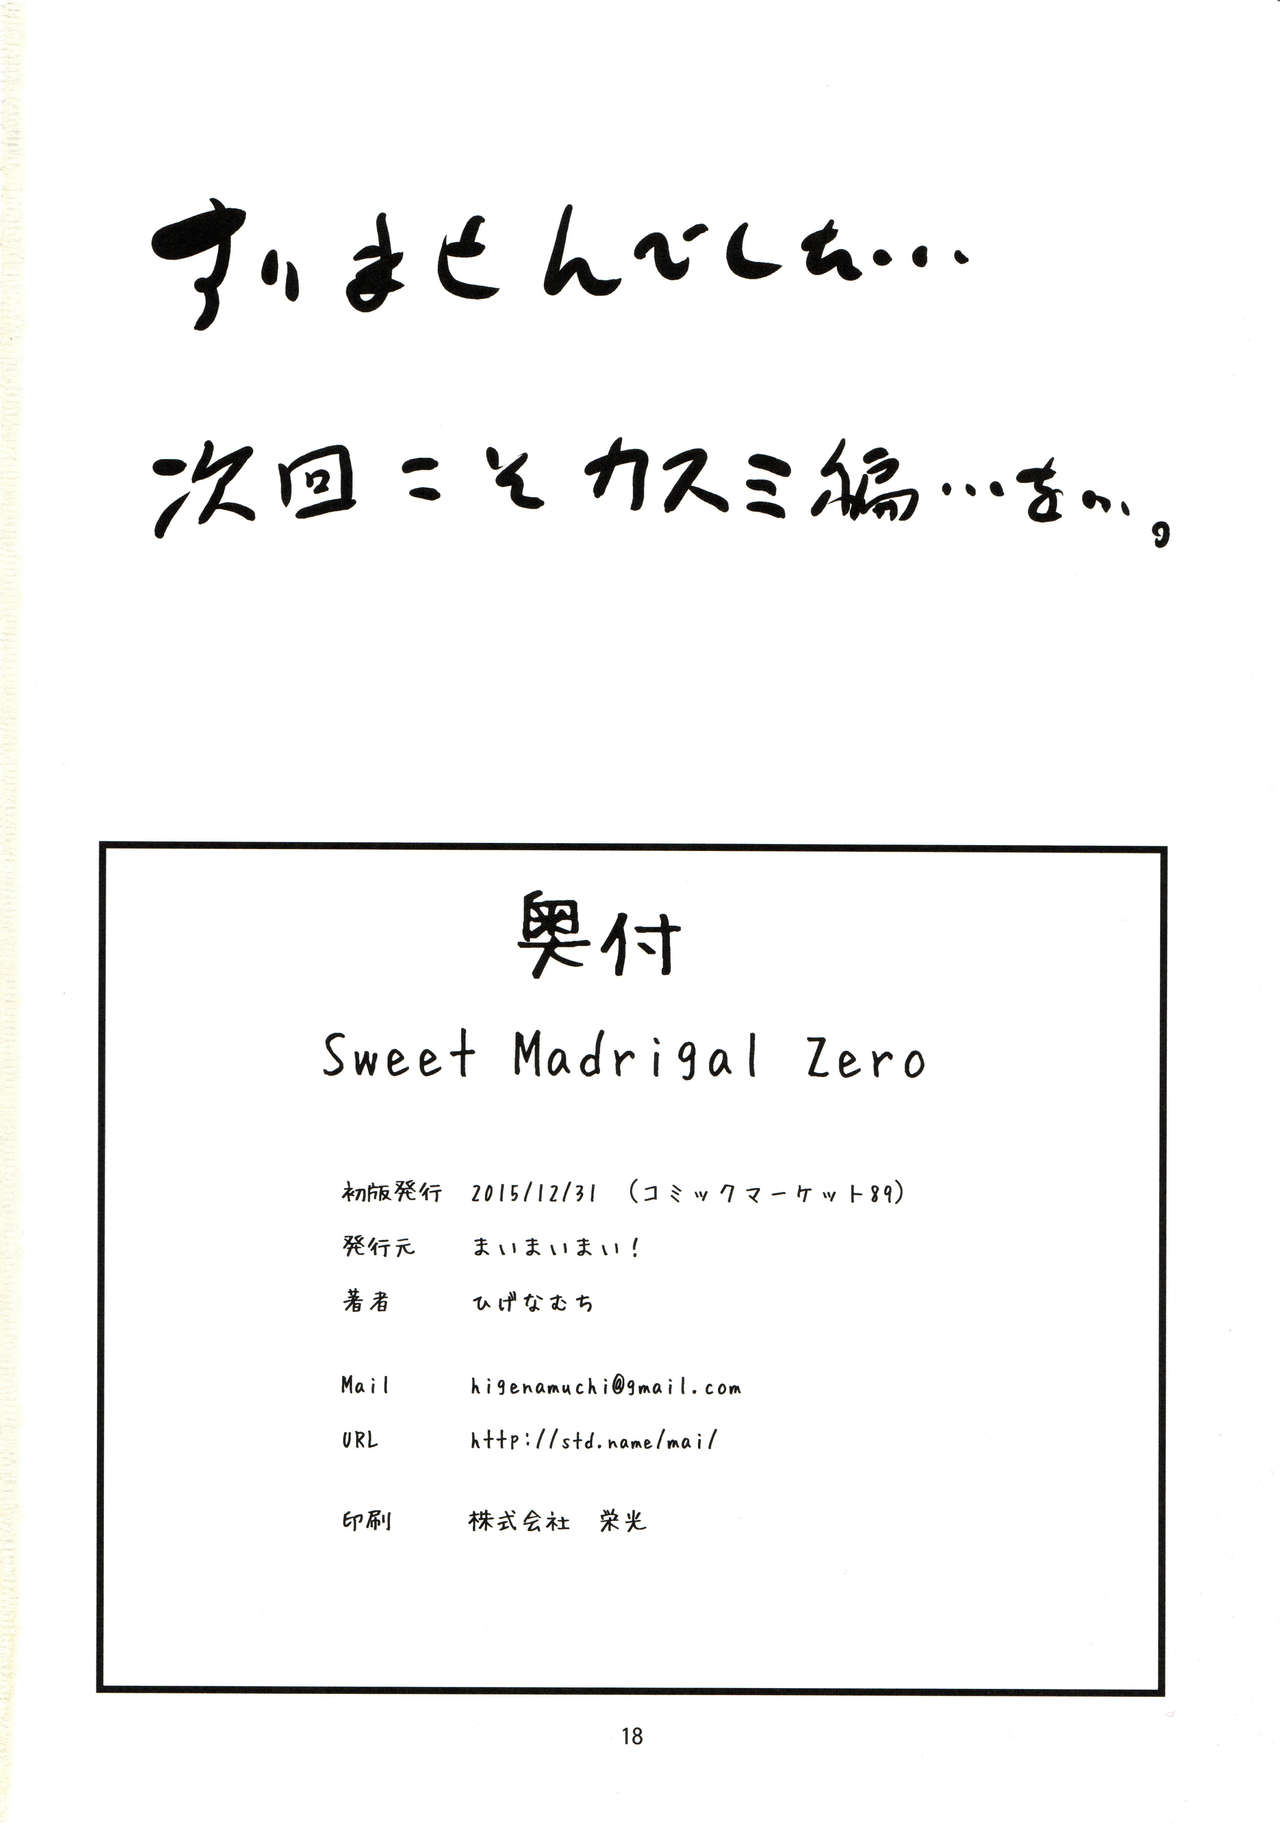 すいませんでした・・・
次回こそカスミ編・・・を・・・。
奥付
Sweet Madrigal Zero
初版発行 2015/12/31 (コミックマーケット89)
発行元 まいまいまい!
著者 ひげなむち
Mail higenamuchi@gmail.com
URL http://std.name/mai/
印刷 株式会社 栄光
18